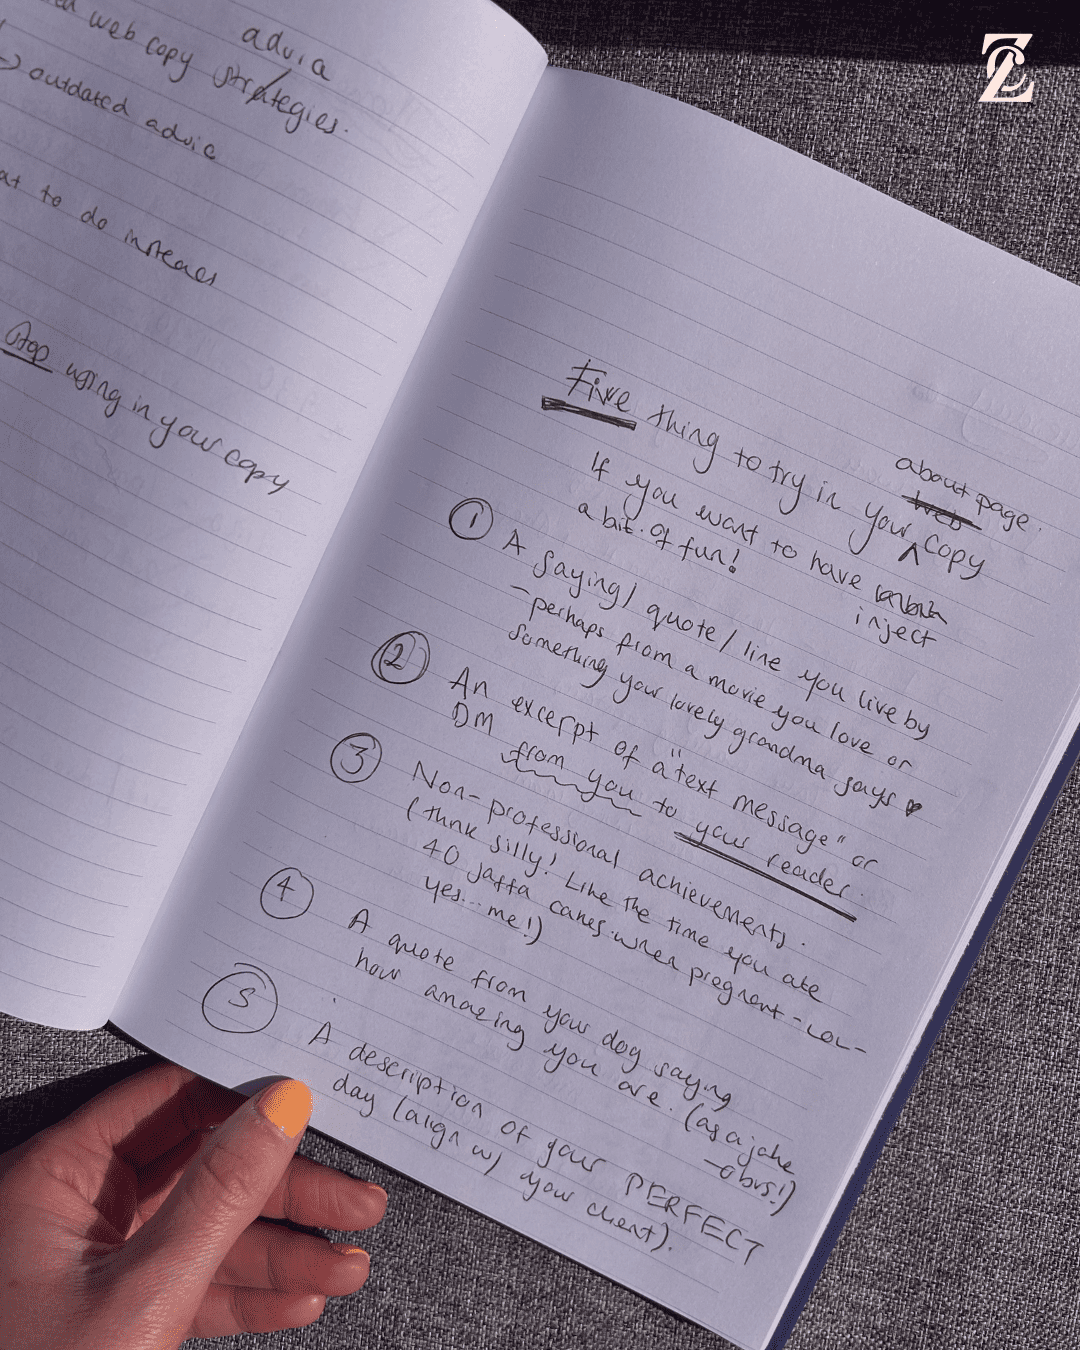 advia
web copy strategies.
outdated advic
at to do insteaes
Stop using in your copy
Five thing to try in your copy
about page.
web
If you want to have
inject
a bit of fun!
1 A saying/quote/line you live by
- perhaps from a movie you love or
something your lovely grandma says ♥
2 An excerpt of a "text message" or
DM from you to your reader.
3 Non-professional achievements.
(think silly! Like the time you ate
40 jaffa cakes when pregnant - cou-
yes... me!)
4 A quote from your dog saying
how amazing you are. (as a joke
- obvs!)
5 A description of your PERFECT
day (align w/ your client).
ZC